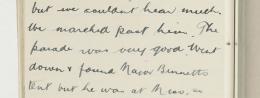 but we couldn't hear much.
We marched past him. The
parade was very good. Went
down & found Major Bennetts
tent but he was at Mess, so